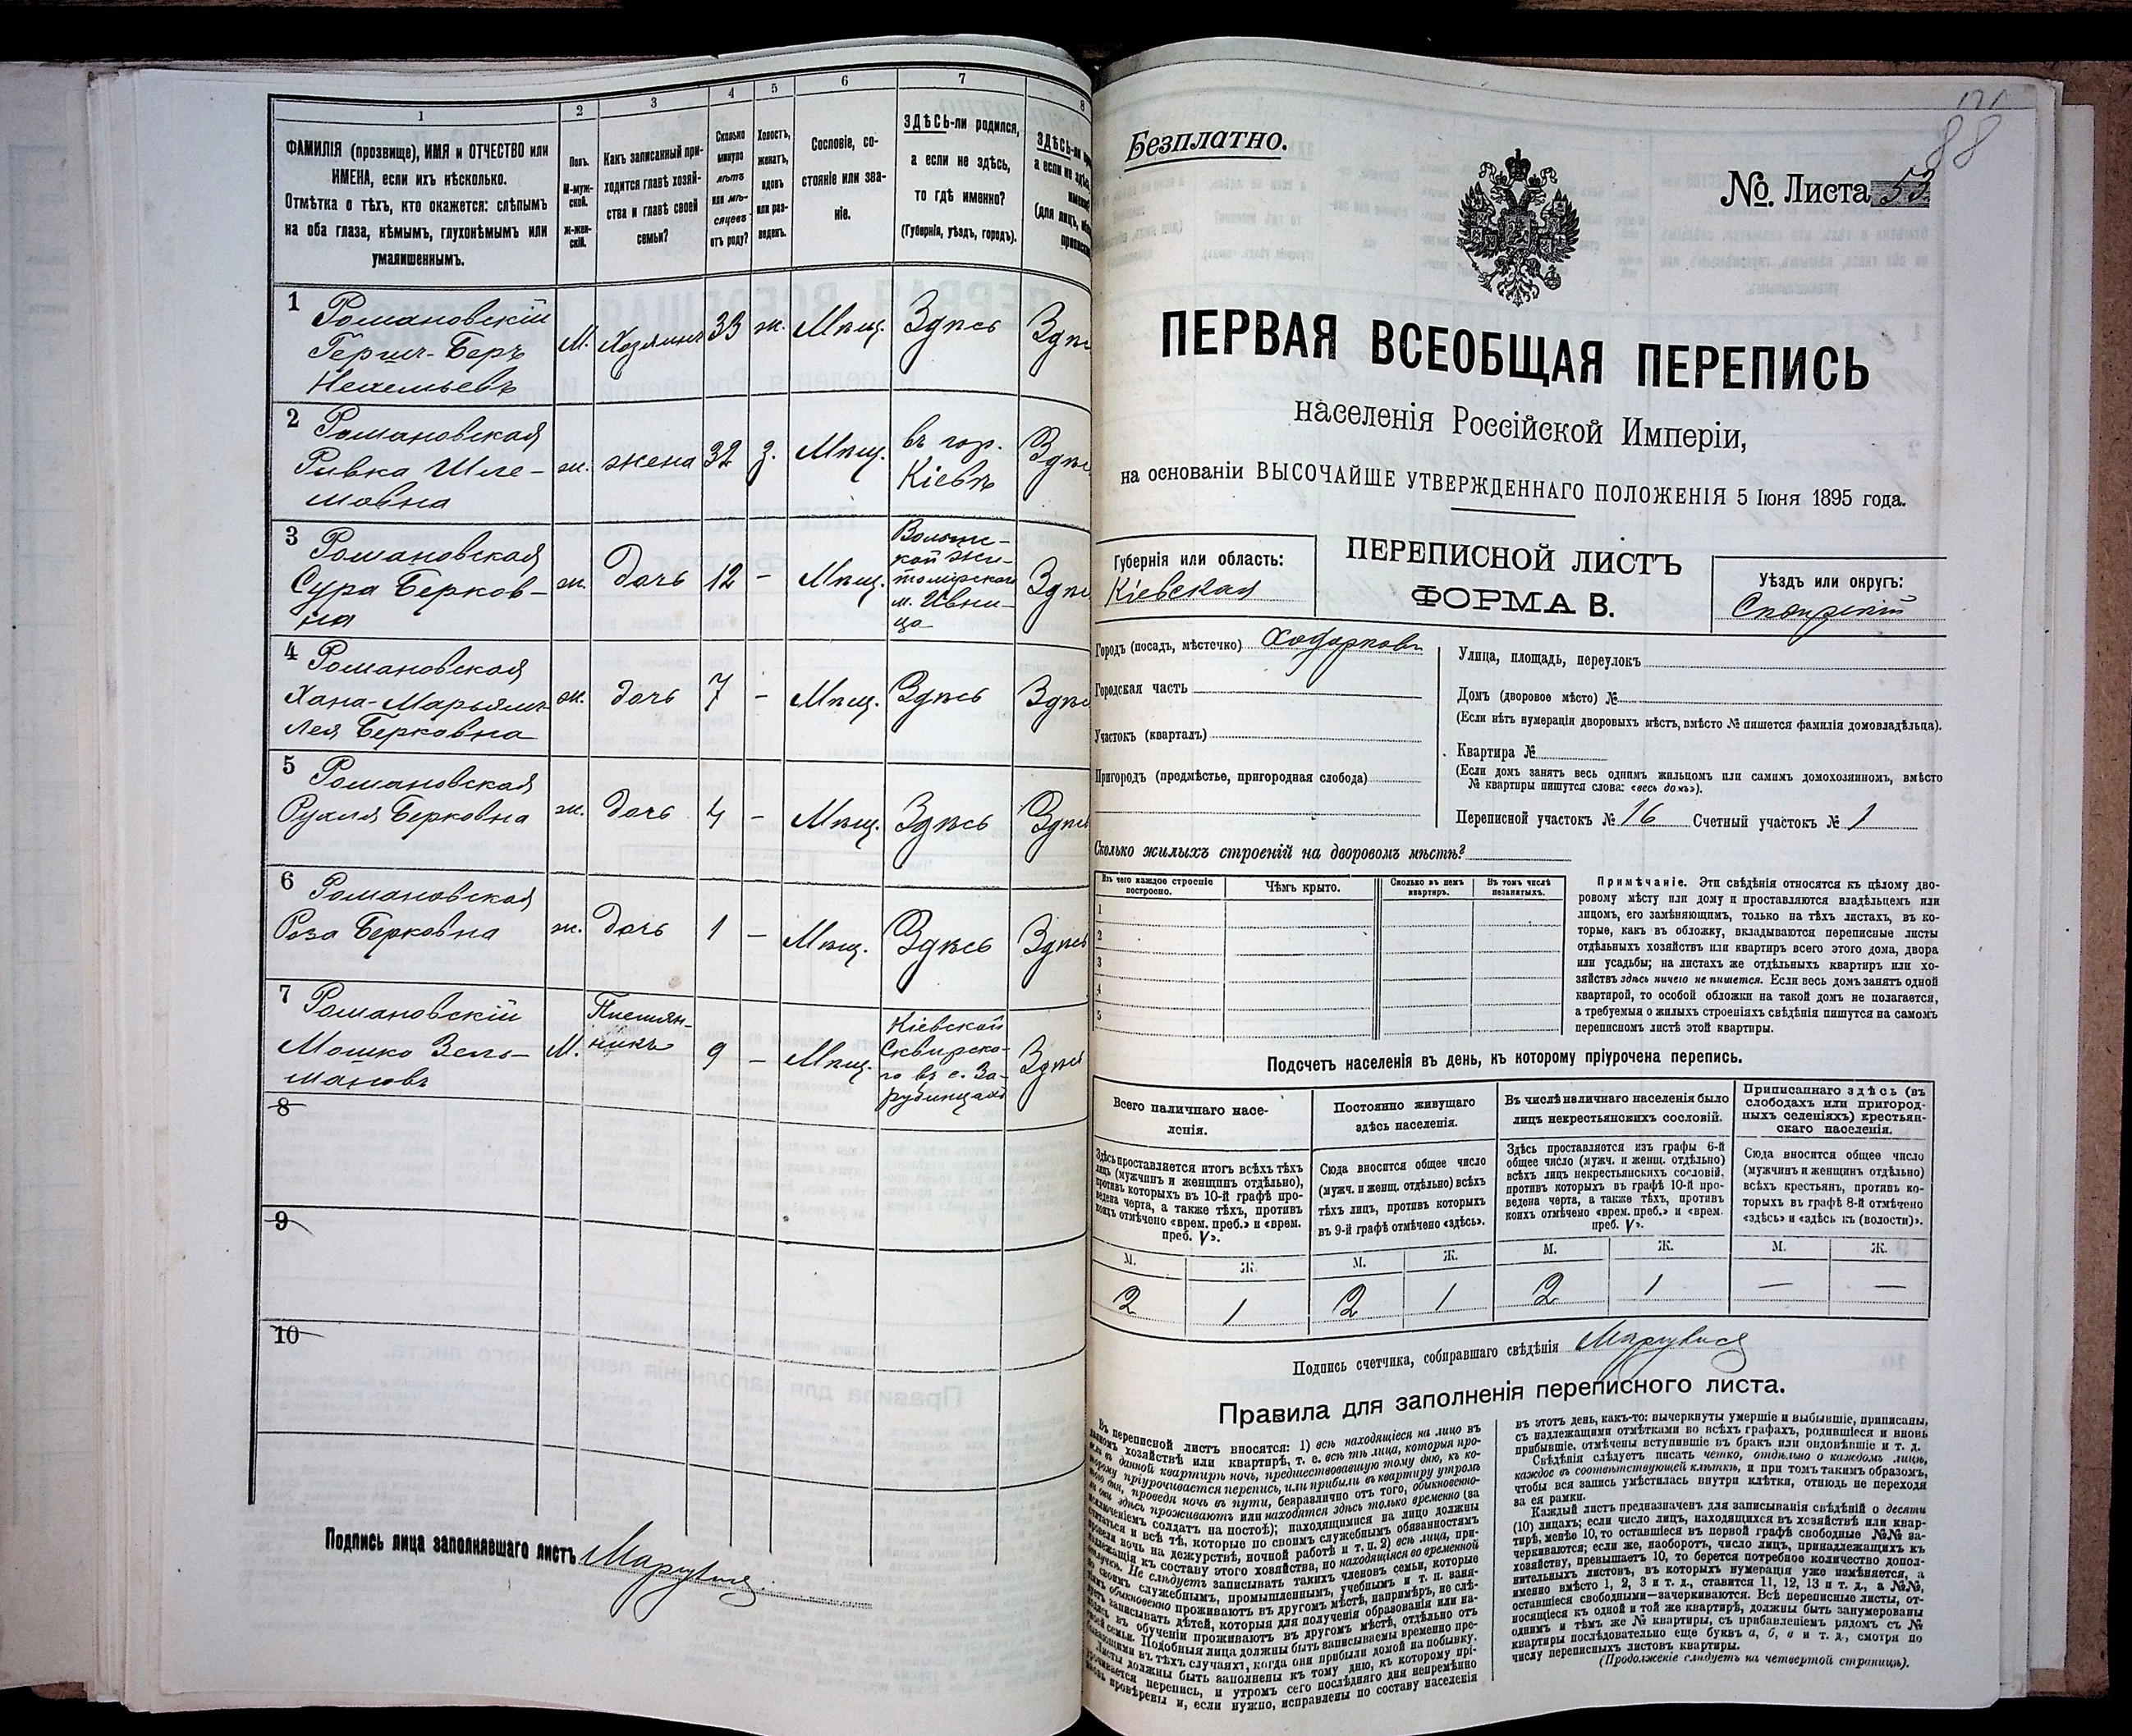 1
2
3
4
5
6
7
8
ФАМИЛІЯ (прозвище), ИМЯ и ОТЧЕСТВО или
ИМЕНА, если ихъ нѣсколько.
Отмѣтка о тѣхъ, кто окажется: слѣпымъ
на оба глаза, нѣмымъ, глухонѣмымъ или
умалишеннымъ.
Полъ.
М-муж-
ской.
Ж-жен-
скій.
Какъ записанный при-
ходится главѣ хозяй-
ства и главѣ своей
семьи?
Сколько
минуло
лѣтъ
или мѣ-
сяцевъ
отъ роду?
Холостъ,
женатъ,
вдовъ
или раз-
веденъ.
Сословіе, со-
стояніе или зва-
ніе.
ЗДѢСЬ-ли родился,
а если не здѣсь,
то гдѣ именно?
(Губернія, уѣздъ, городъ).
ЗДѢСЬ-ли
а если не здѣсь
1 Романовскій
Гершъ-Беръ
Нехемьевъ
М. Хозяинъ 33 ж. Мѣщ. Здѣсь
2 Романовская
Ривка Шле-
мовна
ж. жена 32 з. Мѣщ. въ гор.
Кіевѣ
3 Романовская
Сура Берков-
на
ж. дочь 12 - Мѣщ. Волынс-
кой Жи-
томірскаго
м. Ивни-
ца
4 Романовская
Хана-Марьямъ
Лея Берковна
ж. дочь 7 - Мѣщ. Здѣсь
5 Романовская
Рухля Берковна
ж. дочь 4 - Мѣщ. Здѣсь Здѣсь
6 Романовская
Роза Берковна
ж. дочь 1 - Мѣщ. Здѣсь Здѣсь
7 Романовскій
Мошко Зель-
мановъ
М. Племян-
никъ
9 - Мѣщ. Кіевской
Сквирска-
го въ с. За-
рубинцахъ
Здѣсь
8
9
10
Подпись лица заполнявшаго листъ
88
Безплатно.
№ Листа 53
ПЕРВАЯ ВСЕОБЩАЯ ПЕРЕПИСЬ
населенія Россійской Имперіи,
на основаніи ВЫСОЧАЙШЕ УТВЕРЖДЕННАГО ПОЛОЖЕНІЯ 5 Іюня 1895 года.
Губернія или область:
Кіевская
ПЕРЕПИСНОЙ ЛИСТЪ
ФОРМА В.
Уѣздъ или округъ:
Сквирскій
Городъ (посадъ, мѣстечко) Ходорковъ
Городская часть
Участокъ (кварталъ)
Пригородъ (предмѣстье, пригородная слобода)
Улица, площадь, переулокъ
Домъ (дворовое мѣсто) №
(Если нѣтъ нумераціи дворовыхъ мѣстъ, вмѣсто № пишется фамилія домовладѣльца).
Квартира №
(Если домъ занятъ весь однимъ жильцомъ или самимъ домохозяиномъ, вмѣсто
№ квартиры пишутся слова: «весь домъ»).
Переписной участокъ № 16 Счетный участокъ № 1
Сколько жилыхъ строеній на дворовомъ мѣстѣ?
Изъ чего каждое строеніе
построено.
Чѣмъ крыто.
Сколько въ немъ
квартиръ.
Въ томъ числѣ
незанятыхъ.
1
2
3
4
5
Примѣчаніе. Эти свѣдѣнія относятся къ цѣлому дво-
ровому мѣсту или дому и проставляются владѣльцемъ или
лицомъ, его замѣняющимъ, только на тѣхъ листахъ, въ ко-
торые, какъ въ обложку, вкладываются переписные листы
отдѣльныхъ хозяйствъ или квартиръ всего этого дома, двора
или усадьбы; на листахъ же отдѣльныхъ квартиръ или хо-
зяйствъ здѣсь ничего не пишется. Если весь домъ занятъ одной
квартирой, то особой обложки на такой домъ не полагается,
а требуемыя о жилыхъ строеніяхъ свѣдѣнія пишутся на самомъ
переписномъ листѣ этой квартиры.
Подсчетъ населенія въ день, къ которому пріурочена перепись.
Всего наличнаго насе-
ленія.
Здѣсь проставляется итогъ всѣхъ тѣхъ
лицъ (мужчинъ и женщинъ отдѣльно),
противъ которыхъ въ 10-й графѣ про-
ведена черта, а также тѣхъ, противъ
коихъ отмѣчено «врем. преб.» и «врем.
преб. V».
Постоянно живущаго
здѣсь населенія.
Сюда вносится общее число
(мужч. и женщ. отдѣльно) всѣхъ
тѣхъ лицъ, противъ которыхъ
въ 9-й графѣ отмѣчено «здѣсь».
Въ числѣ наличнаго населенія было
лицъ некрестьянскихъ сословій.
Здѣсь проставляется изъ графы 6-й
общее число (мужч. и женщ. отдѣльно)
всѣхъ лицъ некрестьянскихъ сословій,
противъ которыхъ въ графѣ 10-й про-
ведена черта, а также тѣхъ, противъ
коихъ отмѣчено «врем. преб.» и «врем.
преб. V».
Приписаннаго здѣсь (въ
слободахъ или пригород-
ныхъ селеніяхъ) крестьян-
скаго населенія.
Сюда вносится общее число
(мужчинъ и женщинъ отдѣльно)
всѣхъ крестьянъ, противъ ко-
торыхъ въ графѣ 8-й отмѣчено
«здѣсь» и «здѣсь къ (волости)».
М. Ж. М. Ж. М. Ж. М. Ж.
2 1 2 1 2 1 — —
Подпись счетчика, собиравшаго свѣдѣнія
Правила для заполненія переписного листа.
Въ переписной листъ вносятся: 1) всѣ находящіеся на лицо въ
данномъ хозяйствѣ или квартирѣ, т. е. всѣ тѣ лица, которыя про-
вели въ данной квартирѣ ночь, предшествовавшую тому дню, къ ко-
торому пріурочивается перепись, или прибыли въ квартиру утромъ
того дня, проведя ночь въ пути, безразлично отъ того, обыкновенно-
ли они здѣсь проживаютъ или находятся здѣсь только временно (за
исключеніемъ солдатъ на постоѣ); находящимися на лицо должны
считаться и всѣ тѣ, которые по своимъ служебнымъ обязанностямъ
провели ночь на дежурствѣ, ночной работѣ и т. п. 2) всѣ лица, при-
надлежащія къ составу этого хозяйства, но находящіяся во временной
отлучкѣ. Не слѣдуетъ записывать такихъ членовъ семьи, которые
по своимъ служебнымъ, промышленнымъ, учебнымъ и т. п. заня-
тіямъ обыкновенно проживаютъ въ другомъ мѣстѣ, напримѣръ, не слѣ-
дуетъ записывать дѣтей, которыя для полученія образованія или на-
ходясь въ обученіи проживаютъ въ другомъ мѣстѣ, отдѣльно отъ
своей семьи. Подобныя лица должны быть записываемы временно пре-
бывающими въ тѣхъ случаяхъ, когда они прибыли домой на побывку.
Листы должны быть заполнены къ тому дню, къ которому прі-
урочивается перепись, и утромъ сего послѣдняго дня непремѣнно
вновь провѣрены и, если нужно, исправлены по составу населенія
въ этотъ день, какъ-то: вычеркнуты умершіе и выбывшіе, приписаны,
съ надлежащими отмѣтками во всѣхъ графахъ, родившіеся и вновь
прибывшіе, отмѣчены вступившіе въ бракъ или овдовѣвшіе и т. д.
Свѣдѣнія слѣдуетъ писать четко, отдѣльно о каждомъ лицѣ,
каждое въ соотвѣтствующей клѣткѣ, и при томъ такимъ образомъ,
чтобы вся запись умѣстилась внутри клѣтки, отнюдь не переходя
за ея рамки.
Каждый листъ предназначенъ для записыванія свѣдѣній о десяти
(10) лицахъ; если число лицъ, находящихся въ хозяйствѣ или квар-
тирѣ, менѣе 10, то оставшіеся въ первой графѣ свободные №№ за-
черкиваются; если же, наоборотъ, число лицъ, принадлежащихъ къ
хозяйству, превышаетъ 10, то берется потребное количество допол-
нительныхъ листовъ, въ которыхъ нумерація уже измѣняется, а
именно вмѣсто 1, 2, 3 и т. д., ставится 11, 12, 13 и т. д., а №№,
оставшіеся свободными—зачеркиваются. Всѣ переписные листы, от-
носящіеся къ одной и той же квартирѣ, должны быть занумерованы
однимъ и тѣмъ же № квартиры, съ прибавленіемъ рядомъ съ №
квартиры послѣдовательно еще буквъ а, б, в и т. д., смотря по
числу переписныхъ листовъ квартиры.
(Продолженіе слѣдуетъ на четвертой страницѣ).